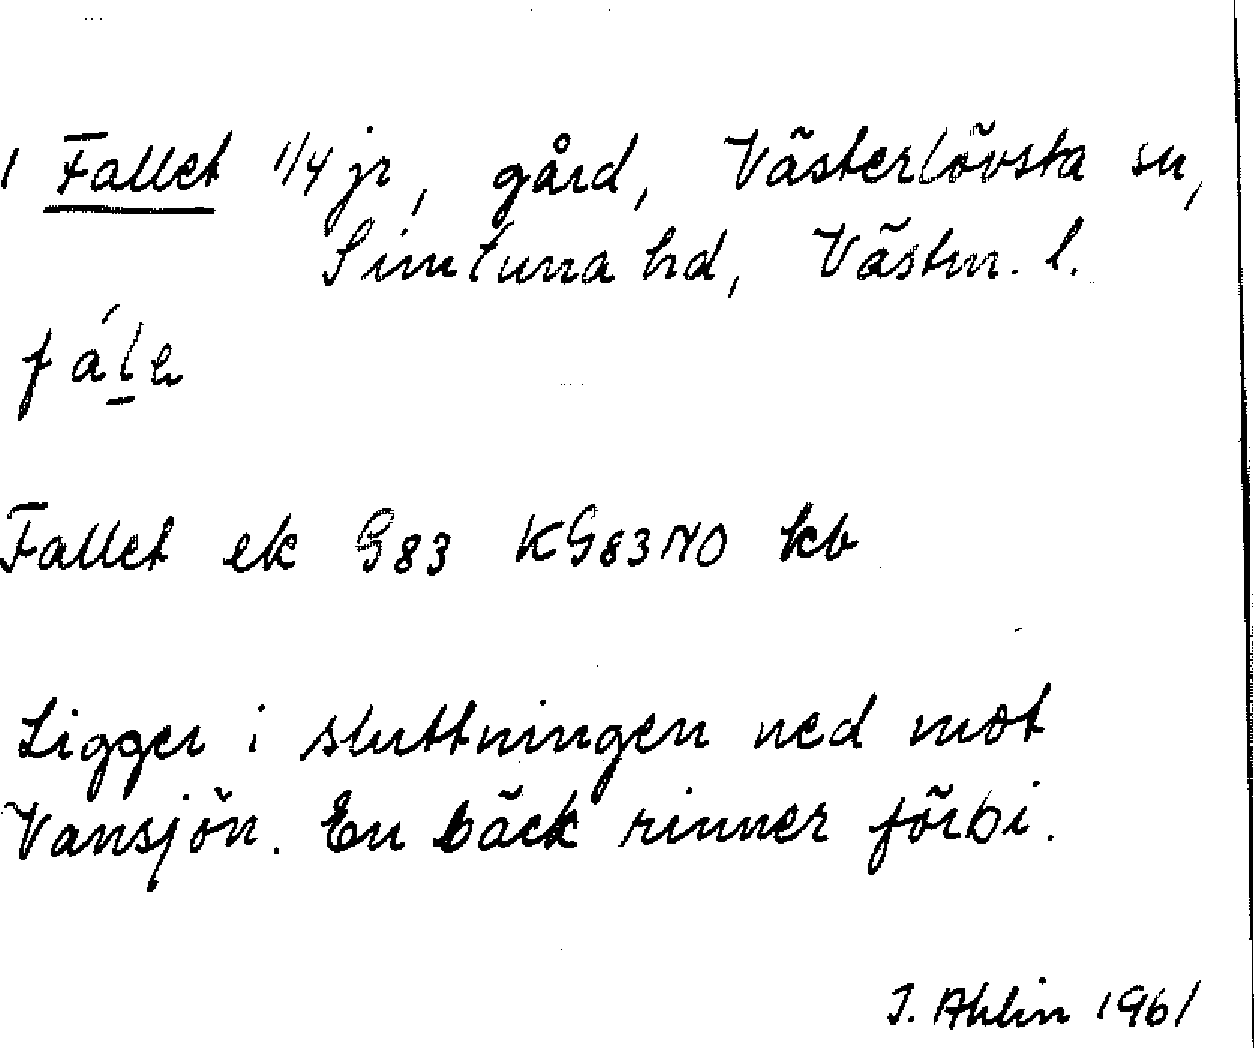 1 Fallet 1/4 jr, gård, Västerlövsta sn,
Simtuna hd, Västm. l.
Fallet ek G83 KG83NO kb
Ligger i sluttningen ned mot
Vansjön. En bäck rinner förbi.
I. Ahlin 1961